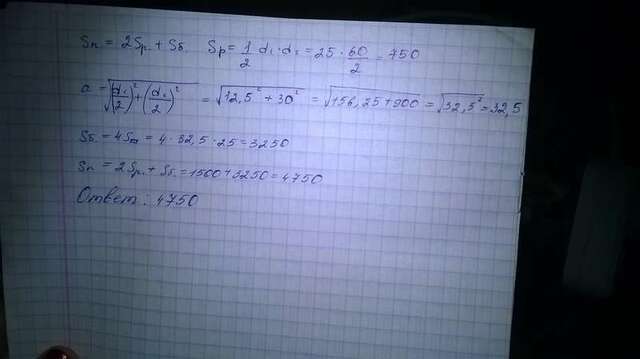 Sп. = 2Sр. + Sб. Sр = 1/2 d₁·d₂ = 25 · 60/2 = 750
a = √((d₁/2)² + (d₂/2)²) = √(12,5² + 30²) = √(156,25 + 900) = √(32,5²) = 32,5
Sб. = 4S = 4 · 32,5 · 25 = 3250
Sп = 2Sр. + Sб. = 1500 + 3250 = 4750
Ответ: 4750